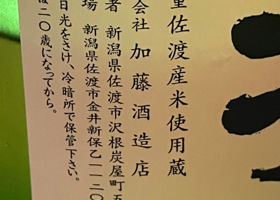 重佐渡産米使用蔵
会社 加藤酒造店
者 新潟県佐渡市沢根炭屋町五
場 新潟県佐渡市金井新保乙一一二〇
日光をさけ、冷暗所で保管下さい。
は二〇歳になってから。